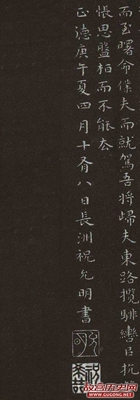 而至曙命僕夫而就駕吾將歸夫東路攬騑轡㠯抗
悵思盤桓而不能去
正德庚午夏四月十有八日長洲祝允明書
允明